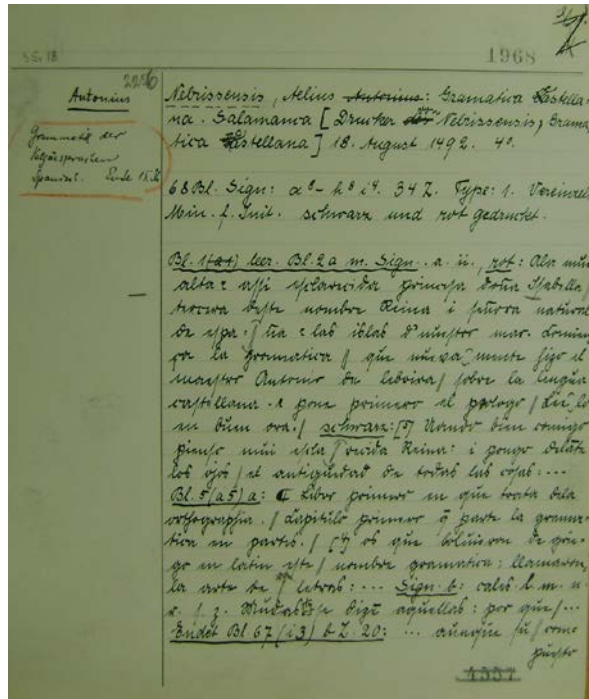 1968
2226
Antonius
Grammatik der
Spanisch. Ende 15. Jh
Nebrissensis, Aelius Antonius: Gramatica Castella-
na. Salamanca [Drucker der Nebrissensis, Grama-
tica Castellana] 18. August 1492. 4°.
68 Bl. Sign: a⁸-h⁸ i⁴. 34 Z. Type: 1. Vereinzelt
Min. f. Init. schwarz und rot gedruckt.
Bl. 1(a1) leer. Bl. 2a m. Sign. a. ii., rot: Ala mui
alta ⁊ assi esclarecida princesa doña Isabella
tercera deste nombre Reina i señora natural
de espa-/ña ⁊ las islas d'nuestro mar. Comien
ça la grammatica / que nueva mente hizo el
maestro Antonio de lebrixa / sobre la lengua
castellana. ⁊ pone primero el prologo / Lee lo
en buen ora. / schwarz: [5] Uando bien comigo
pienso mui escla/recida Reina: i pongo delāte
los ojos / el antiguedad de todas las cosas: ...
Bl. 5(a5)a: ¶ Libro primero en que trata dela
orthographia. / Capitulo primero q̄ parte la grama-
tica en partes. / [4] os que bolvieron de grie-
go en latin este / nombre gramatica: llamaron
la arte de / letras: ... Sign. b: cales. l. m. n.
r. s. z. Mudas se dizē aquellas: por que / ...
Endet Bl. 67 (i3) b Z. 20: ... aunque su / come
puesto
4557